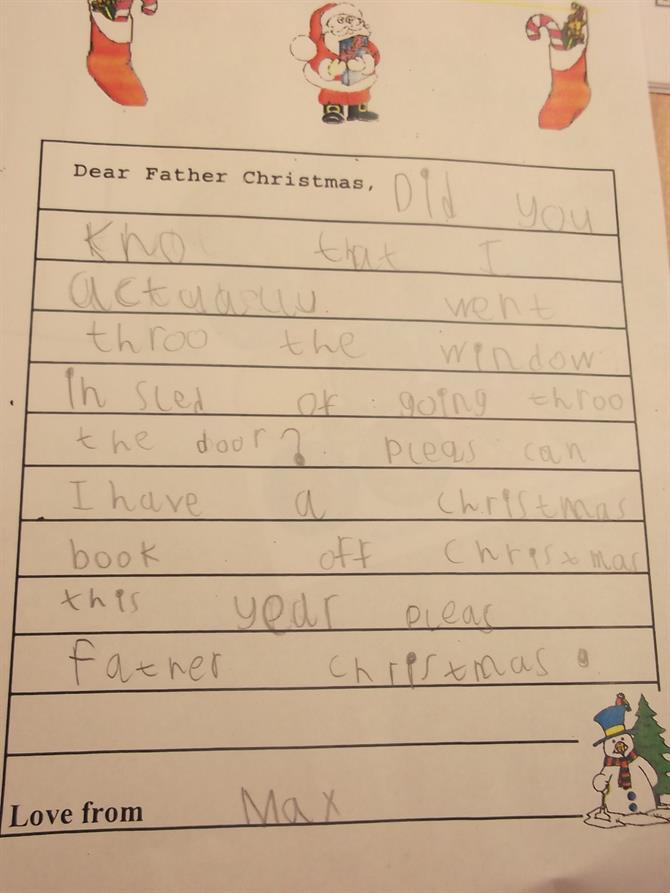 Dear Father Christmas, Did you
Kno that I
actuasuu. went
throo the window
in sled of going throo
the door? pleas can
I have a christmas
book off christmas
this year pleas
father christmas.
Love from Max